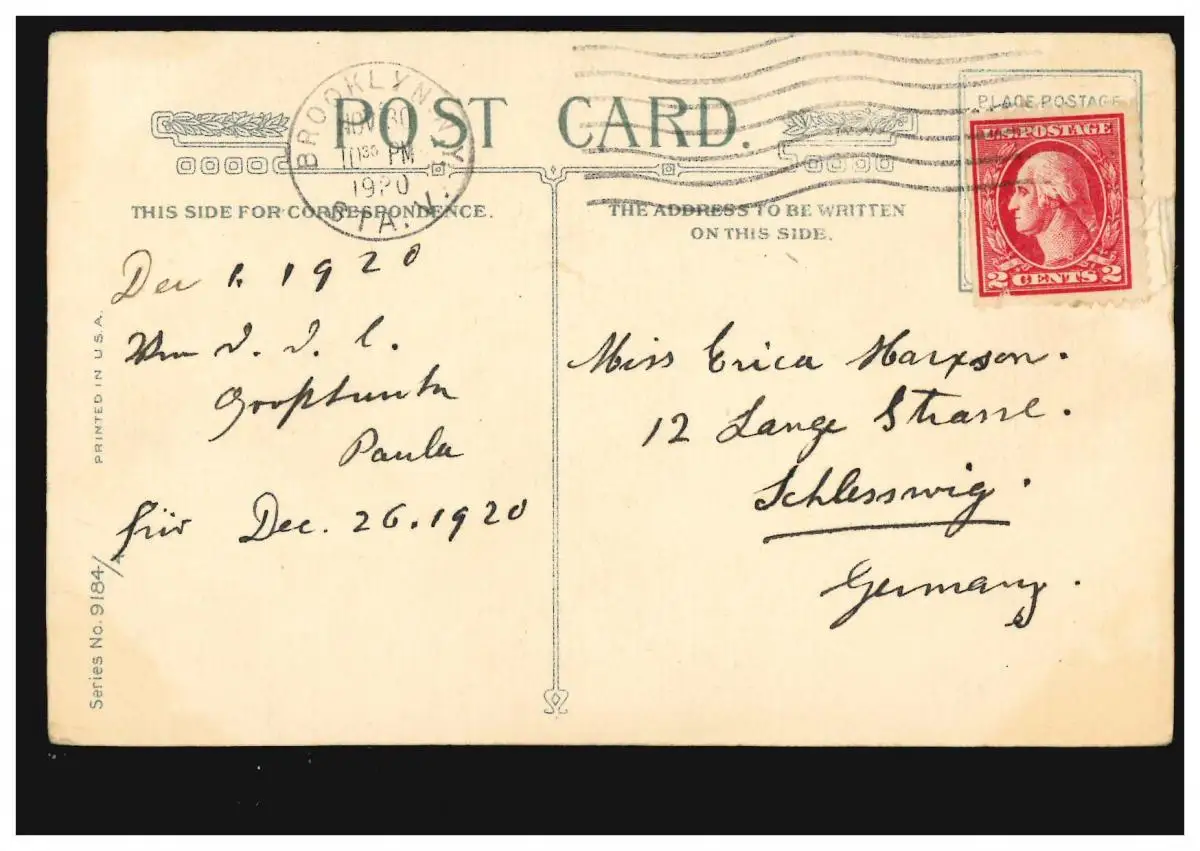 POST CARD.
PLACE POSTAGE
BROOKLYN, N.Y.
NOV 30
10 30 PM
1920
STA.
U.S. POSTAGE
2 CENTS 2
THIS SIDE FOR CORRESPONDENCE.
THE ADDRESS TO BE WRITTEN
ON THIS SIDE.
Dec 1. 1920
Großtante
Paula
für Dec. 26. 1920
Miss Erica Marxson.
12 Lange Strasse.
Schlesswig.
Germany.
PRINTED IN U.S.A.
Series No. 9184/